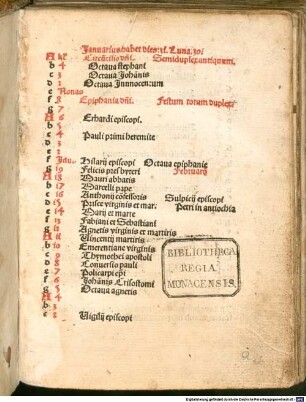 Januarius habet dies
A kl Circūcisio dñi. Semiduplex antiquum.
b 4 Octaua stephani
c 3 Octaua Johānis
d 2 Octaua Innocentum
e Nonas
f 8 Epiphania dñi. Festum totum duplex
g 7
A 6 Erhardi episcopi
b 5
c 4 Pauli primi heremite
d 3
e 2
f Idus Hilarij episcopi Octaua epiphanie
g 19 Felicis presbyteri Februarij
A 18 Mauri abbatis
b 17 Marcelli pape
c 16 Anthonij cōfessoris Sulpicij episcopi
d 15 Prisce virginis et mar. Petri in antiochia
e 14 Marij et marte
f 13 Fabiani et Sebastiani
g 12 Agnetis virginis et martiris
A 11 Vincentij martiris
b 10 Emerentiane virginis
c 9 Thymothei apostoli
d 8 Conuersio pauli
e 7 Policarpi epi
f 6 Johānis Crisostomi
g 5 Octaua agnetis
A 4
b 3
c 2 Vigilij episcopi
BIBLIOTHECA
REGIA
MONACENSIS.